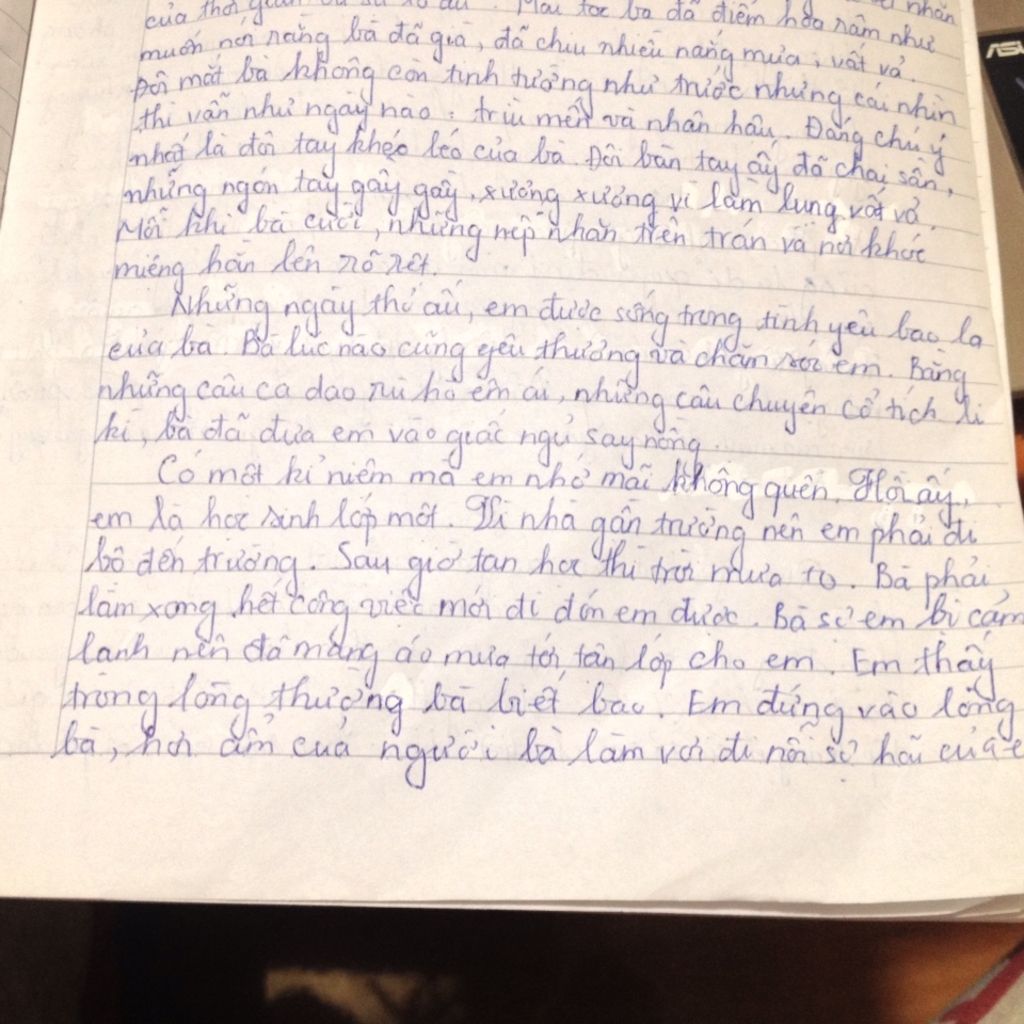 nhăn
của thời gian và sự . Mái tóc bà đã điểm hoa râm như
muốn nói rằng bà đã già, đã chịu nhiều nắng mưa, vất vả.
Đôi mắt bà không còn tinh tường như trước nhưng cái nhìn
thì vẫn như ngày nào: trìu mến và nhân hậu. Đáng chú ý
nhất là đôi tay khéo léo của bà. Đôi bàn tay ấy đã chai sần,
những ngón tay gầy gầy, xương xương vì làm lụng vất vả
Mỗi khi bà cười, những nếp nhăn trên trán và nơi khóe
miệng hằn lên rõ rệt.
Những ngày thơ ấu, em được sống trong tình yêu bao la
của bà. Bà lúc nào cũng yêu thương và chăm sóc em. Bằng
những câu ca dao ru hò êm ái, những câu chuyện cổ tích li
kì, bà đã đưa em vào giấc ngủ say nồng.
Có một kỉ niệm mà em nhớ mãi không quên. Hồi ấy,
em là học sinh lớp một. Vì nhà gần trường nên em phải đi
bộ đến trường. Sau giờ tan học thì trời mưa to. Bà phải
làm xong hết công việc mới đi đón em được. Bà sợ em bị cảm
lạnh nên đã mang áo mưa tới tận lớp cho em. Em thấy
trong lòng thương bà biết bao. Em đứng vào lòng
bà, hơi ấm của người bà làm vơi đi nỗi sợ hãi của e
ASU